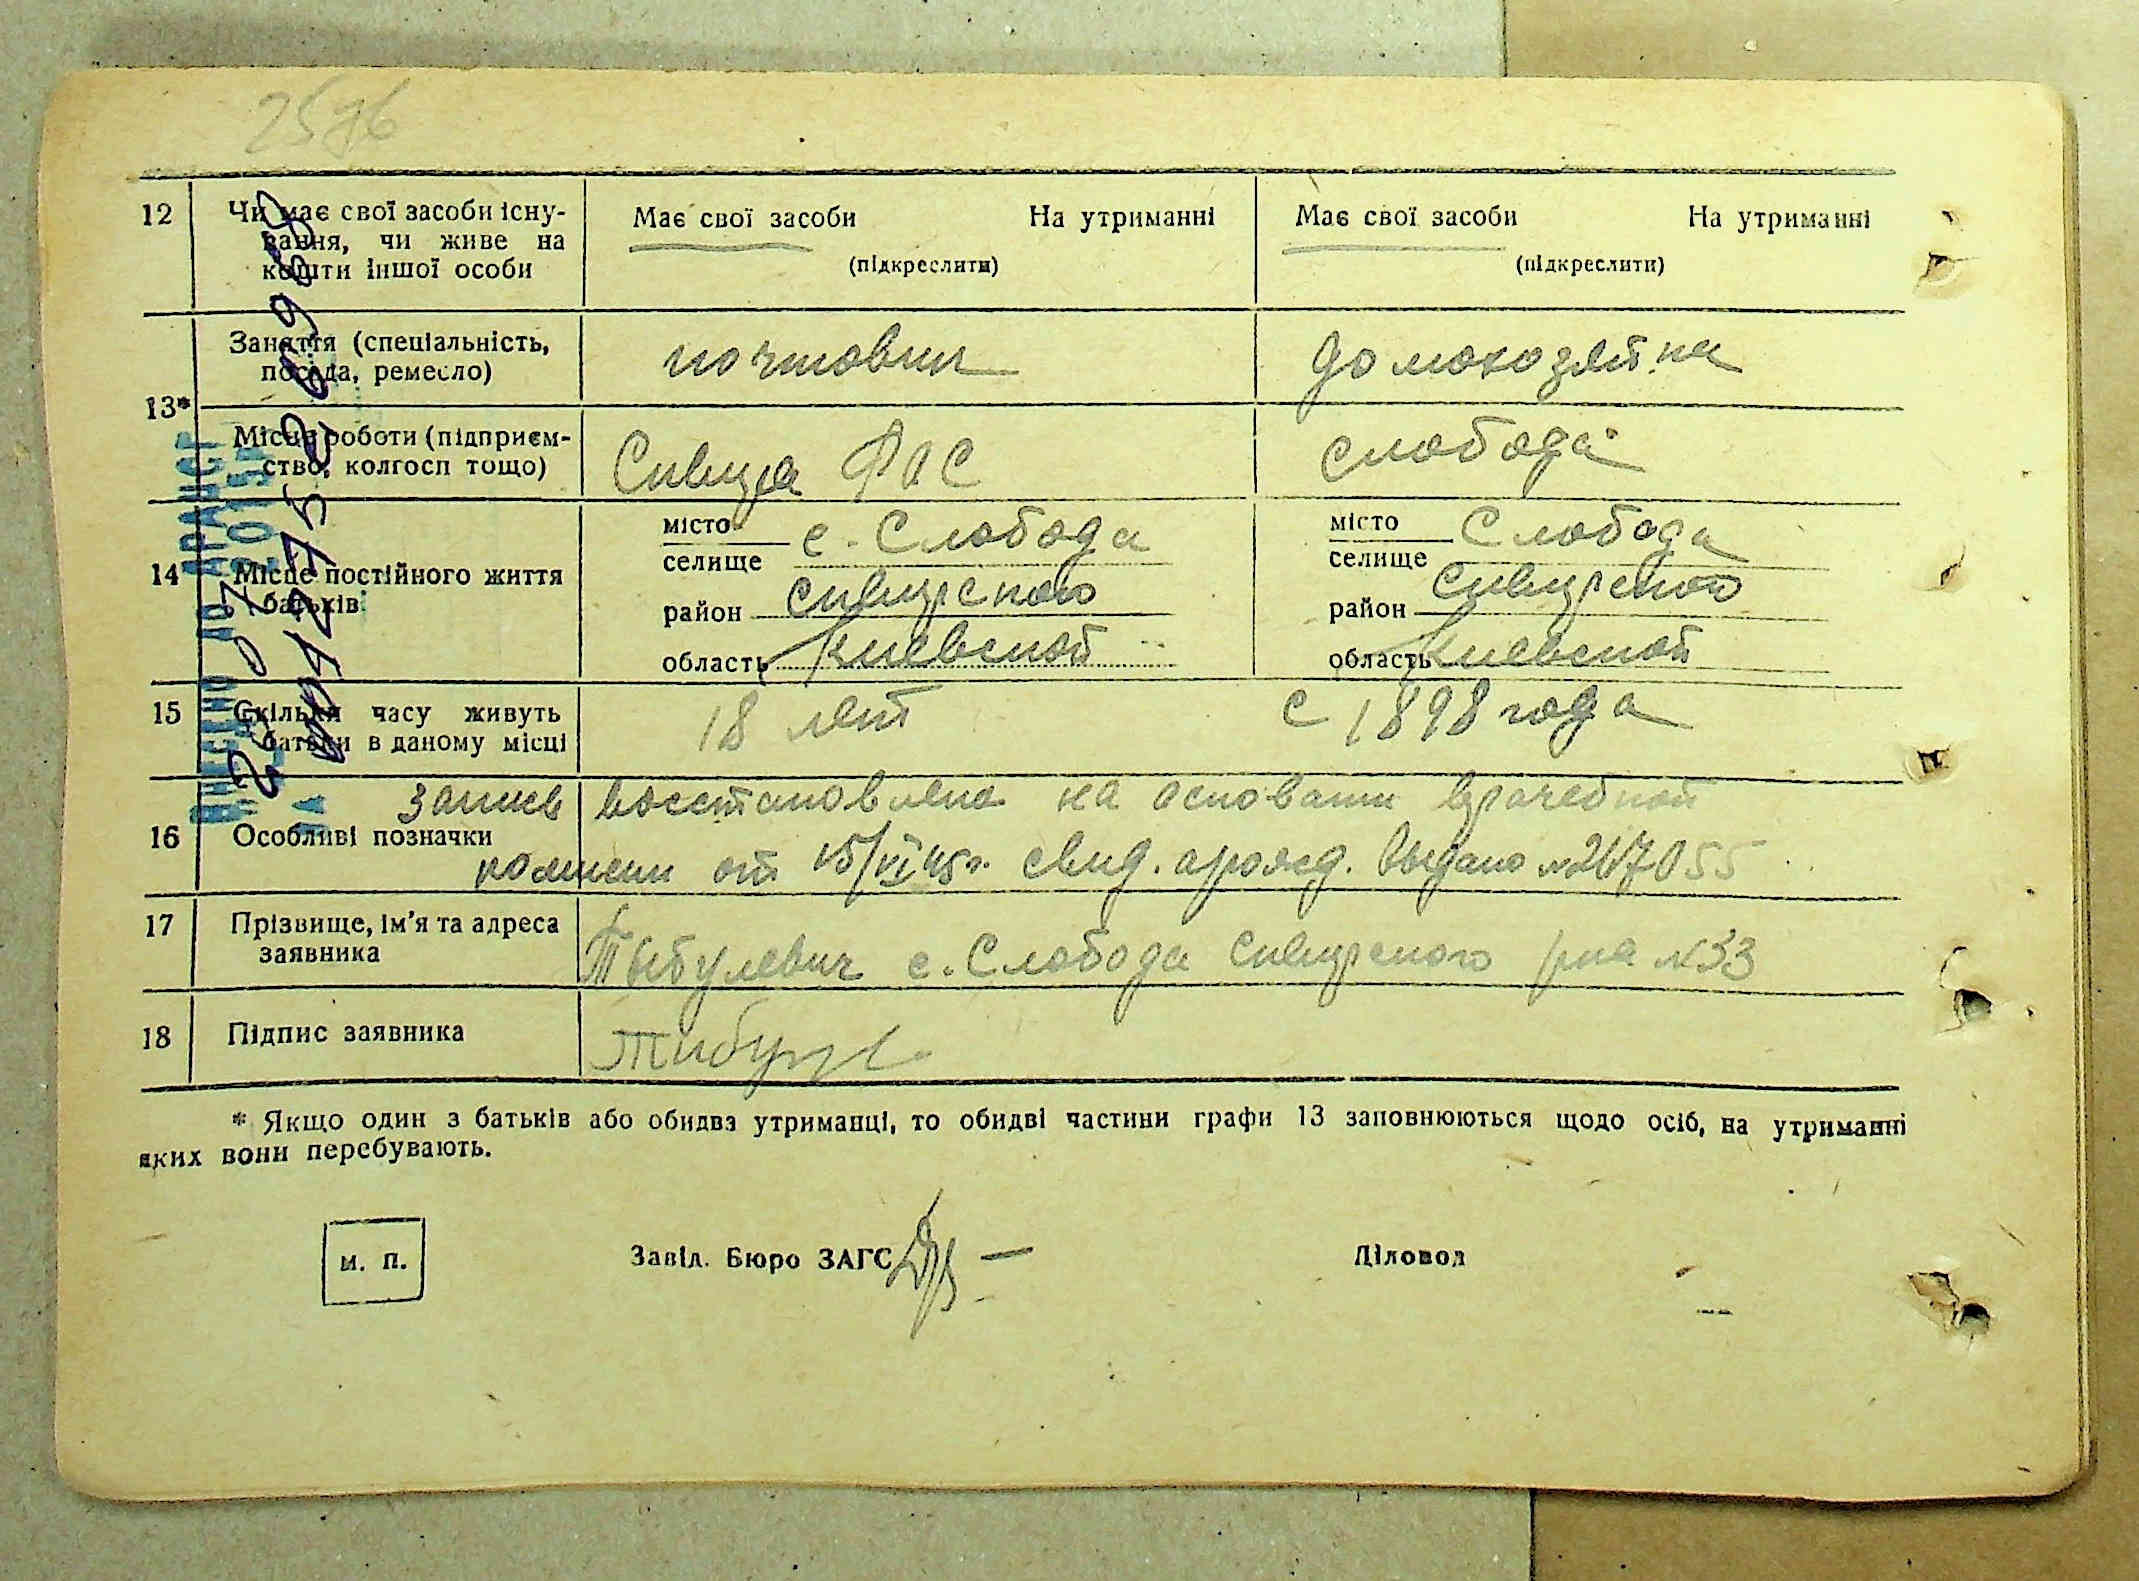 2576
12 Чи має свої засоби існу-
вання, чи живе на
кошти іншої особи
Має свої засоби На утриманні
(підкреслити)
Має свої засоби На утриманні
(підкреслити)
13*
Заняття (спеціальність,
посада, ремесло)
почтовик
домохозяйка
Місце роботи (підприєм-
ство, колгосп тощо)
Сквира
слобода
14 Місце постійного життя
батьків
місто
селище
с. Слобода
район сквирского
область Киевской
місто
селище
Слобода
район сквирского
область Киевской
15 Скільки часу живуть
батьки в даному місці
18 лет
с 1898 года
16 Особливі позначки
запись восстановлена на основании врачебной
комисии от 15/VI 45 г. свид. о рожд. выдано №
17 Прізвище, ім'я та адреса
заявника
с. Слобода сквирского рна №33
18 Підпис заявника
* Якщо один з батьків або обидва утриманці, то обидві частини графи 13 заповнюються щодо осіб, на утриманні
яких вони перебувають.
м. п.
Завід. Бюро ЗАГС
Діловод
ВНЕСЕНО ДО ДРАЦСГ
ЗА